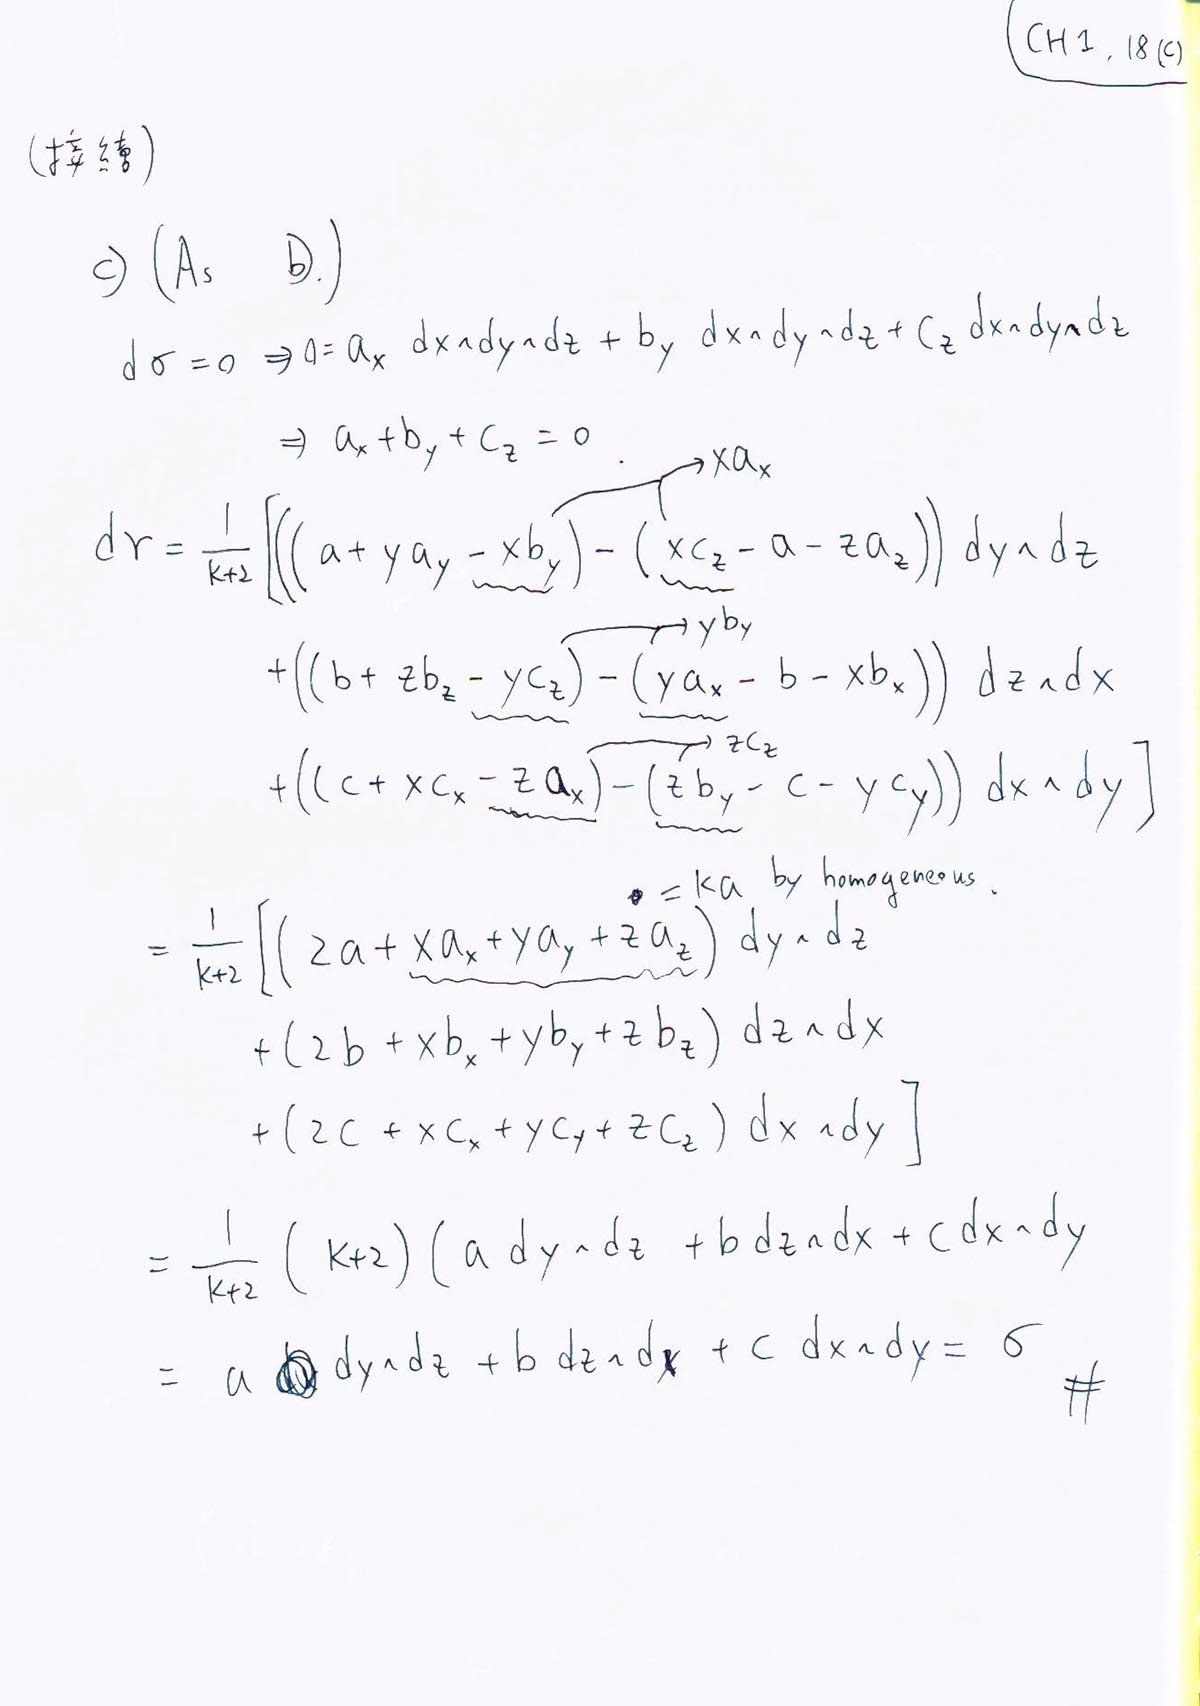 CH1, 18(c)
(接續)
c) (As b.)
dσ=0 ⇒ 0= a_x dx∧dy∧dz + b_y dx∧dy∧dz + c_z dx∧dy∧dz
⇒ a_x + b_y + c_z = 0.
→ xa_x
dr = 1/(k+2) [((a + ya_y - xb_y) - (xc_z - a - za_z)) dy∧dz
→ yb_y
+((b + zb_z - yc_z) - (ya_x - b - xb_x)) dz∧dx
→ zc_z
+((c + xc_x - za_x) - (zb_y - c - yc_y)) dx∧dy]
= ka by homogeneous.
= 1/(k+2) [(2a + xa_x + ya_y + za_z) dy∧dz
+(2b + xb_x + yb_y + zb_z) dz∧dx
+(2c + xc_x + yc_y + zc_z) dx∧dy]
= 1/(k+2) (k+2)(a dy∧dz + b dz∧dx + c dx∧dy
= a dy∧dz + b dz∧dx + c dx∧dy = σ #